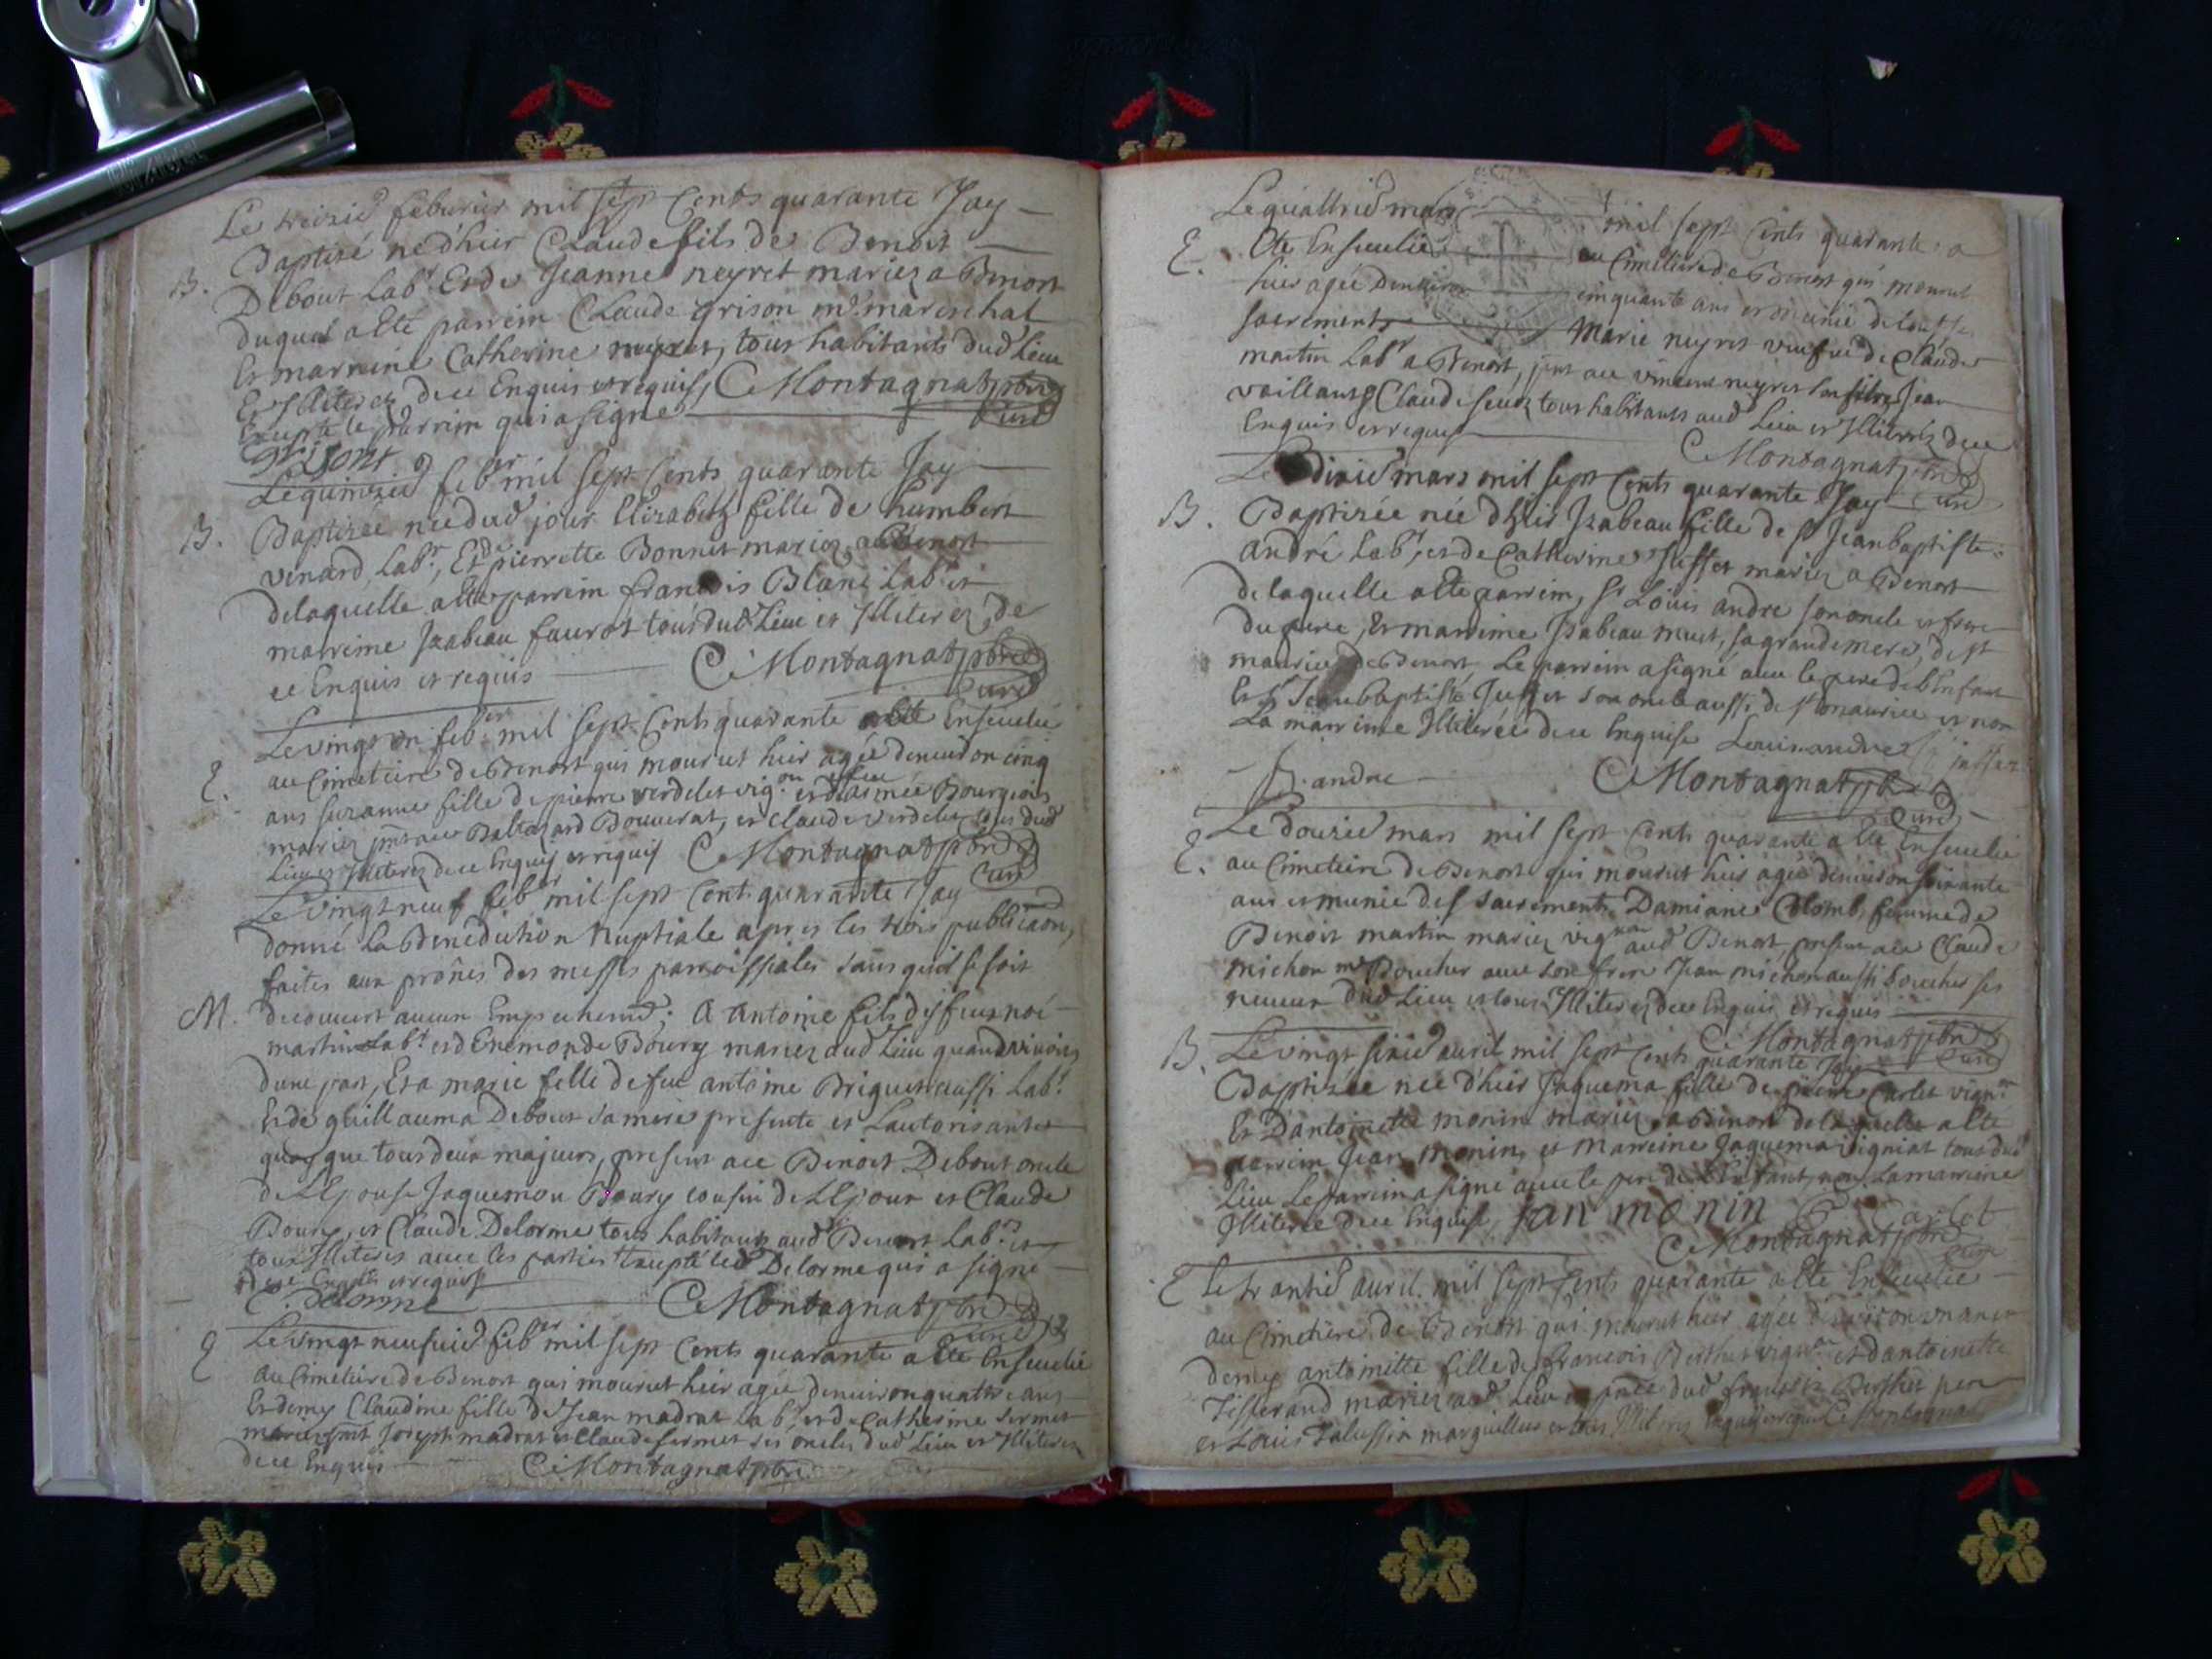 Le treizie feburier mil sept Cents quarante Jay
B. Baptizé ne d'hier Claude fils de Benoit
Debout labr. Et de Jeanne neyret mariez a Benost
duquel a Eté parrein Claude grison me. mareschal
Et marreine Catherine neyret, tous habitants dud Lieu
Et Illiterez de ce Enquis et requis, C Montagnat pbre
Excepté le parrein qui a signé curé
grisont
Le quinzie febr mil sept Cents quarante Jay
B. Baptizée née dud jour Elizabeth fille de humbert
venard, labr, Et de pierrette Bonnet mariez a Benost
de laquelle a Eté parrein francois Blanc labr et
marreine Izabeau faurot tous dud Lieu et Illiterez de
ce Enquis et requis C Montagnat pbre
curé
Le vingt un febr mil sept Cents quarante a Eté Enseuelie
E. au Cimetiere de Benost qui mourut hier agée denuiron cinq
ans suzanne fille de pierre verdelet vigon et d'aimée Bourgeois
mariez Balthazard Bouuerat, et claude verdelet tous dud
Lieu et Illiterez de ce Enquis et requis C Montagnat pbre
curé
Le vingt neuf febr mil sept Cents quarante Jay
donné la Benediction Nuptiale apres les trois publicaons,
faites aux prônes des messes parroissiales sans quil se soit
M. decouuert aucun Empechemt; A Antoine fils de feu noé
martin labr. et d'Enemonde Boury mariez aud Lieu quand viuoins
dune part, Et a marie fille de feu antoine Briquet aussi labr.
Et de guillauma Debout sa mere presente et Lautorisante
quoy que tous deux majeurs, present ace Benoit Debout oncle
de LEpouse Jaquemou Boury cousin de LEpoux et Claude
Boury, et Claude Delorme tous habitants aud Benost labr. et
tous Illiterés auec les parties Excepté led Delorme qui a signé
de ce Enquis et requis
C. Delorme C Montagnat pbre
curé
E Le vingt neufuie febr mil sept Cents quarante a Eté Enseuelie
au Cimetiere de Benost qui mourut hier agée denuiron quatre ans
Et demy Claudine fille de Jean madrat labr. et de Catherine sermet
mariez joseph madrat et Claude sermet ses oncles dud Lieu et Illiterez
de ce Enquis C Montagnat pbre
Le quattrie mars mil sept Cents quarante a
E. Eté Enseuelie au Cimetiere de Benost qui mourut
hier agée Denuiron cinquante ans et munie de tous les
sacrements Marie neyret veufue de Claude
martin labr a Benost, ace vincent neyret son Jean
vaillant, Claude tous habitants aud Lieu et Illiterés de ce
Enquis et requis C Montagnat pbre
Le dixie mars mil sept Cents quarante Jay curé
B. Baptizée née d'hier Izabeau fille de sr Jeanbaptiste
andré labr, et de Catherine mariez a Benost
de laquelle a Eté parrein, sr Louis andré son oncle et frere
du pere, Et marreine Isabeau muet, sa grandemere, de st
maurice de Benost, Le parrein a signé auec le pere de l'Enfant
Et sr Jeanbaptiste son oncle aussi de st maurice et non
La marreine Illiterée de ce Enquise Louis andré
andre C Montagnat pbre
curé
Le douzie mars mil sept Cents quarante a Eté Enseuelie
E. au Cimetiere de Benost qui mourut hier agée denuiron soixante
ans et munie des sacrements Damiane Colomb, femme de
Benoit martin mariez vignon aud Benost, present ace Claude
michon me Boucher auec son frere Jean michon aussi boucher ses
neueux dud Lieu et tous Illiterez de ce Enquis et requis
C Montagnat pbre
curé
B. Le vingt sixie auril mil sept Cents quarante Jay
Baptizée née d'hier Jaquema fille de pierre Carlet vignon
Et D'antoinette monin mariez a Benost de laquelle a Eté
parrein Jean Monin, et Marreine Jaquema vigniat tous dud
Lieu Le parrein a signé auec le pere de l'Enfant, non La marreine
Illiterée de ce Enquise, jan monin Carlet
C Montagnat pbre
curé
E Le trantie auril mil sept Cents quarante a Eté Enseuelie
au Cimetiere de Benost qui mourut hier agée d'enuiron un an et
demy antoinette fille de francois Berthet vignon et d'antoinette
Tisserand mariez aud Lieu dud francois Berthet pere
et Louis Jalussin marguillier et tous Illiterez Enquis et requis C Montagnat